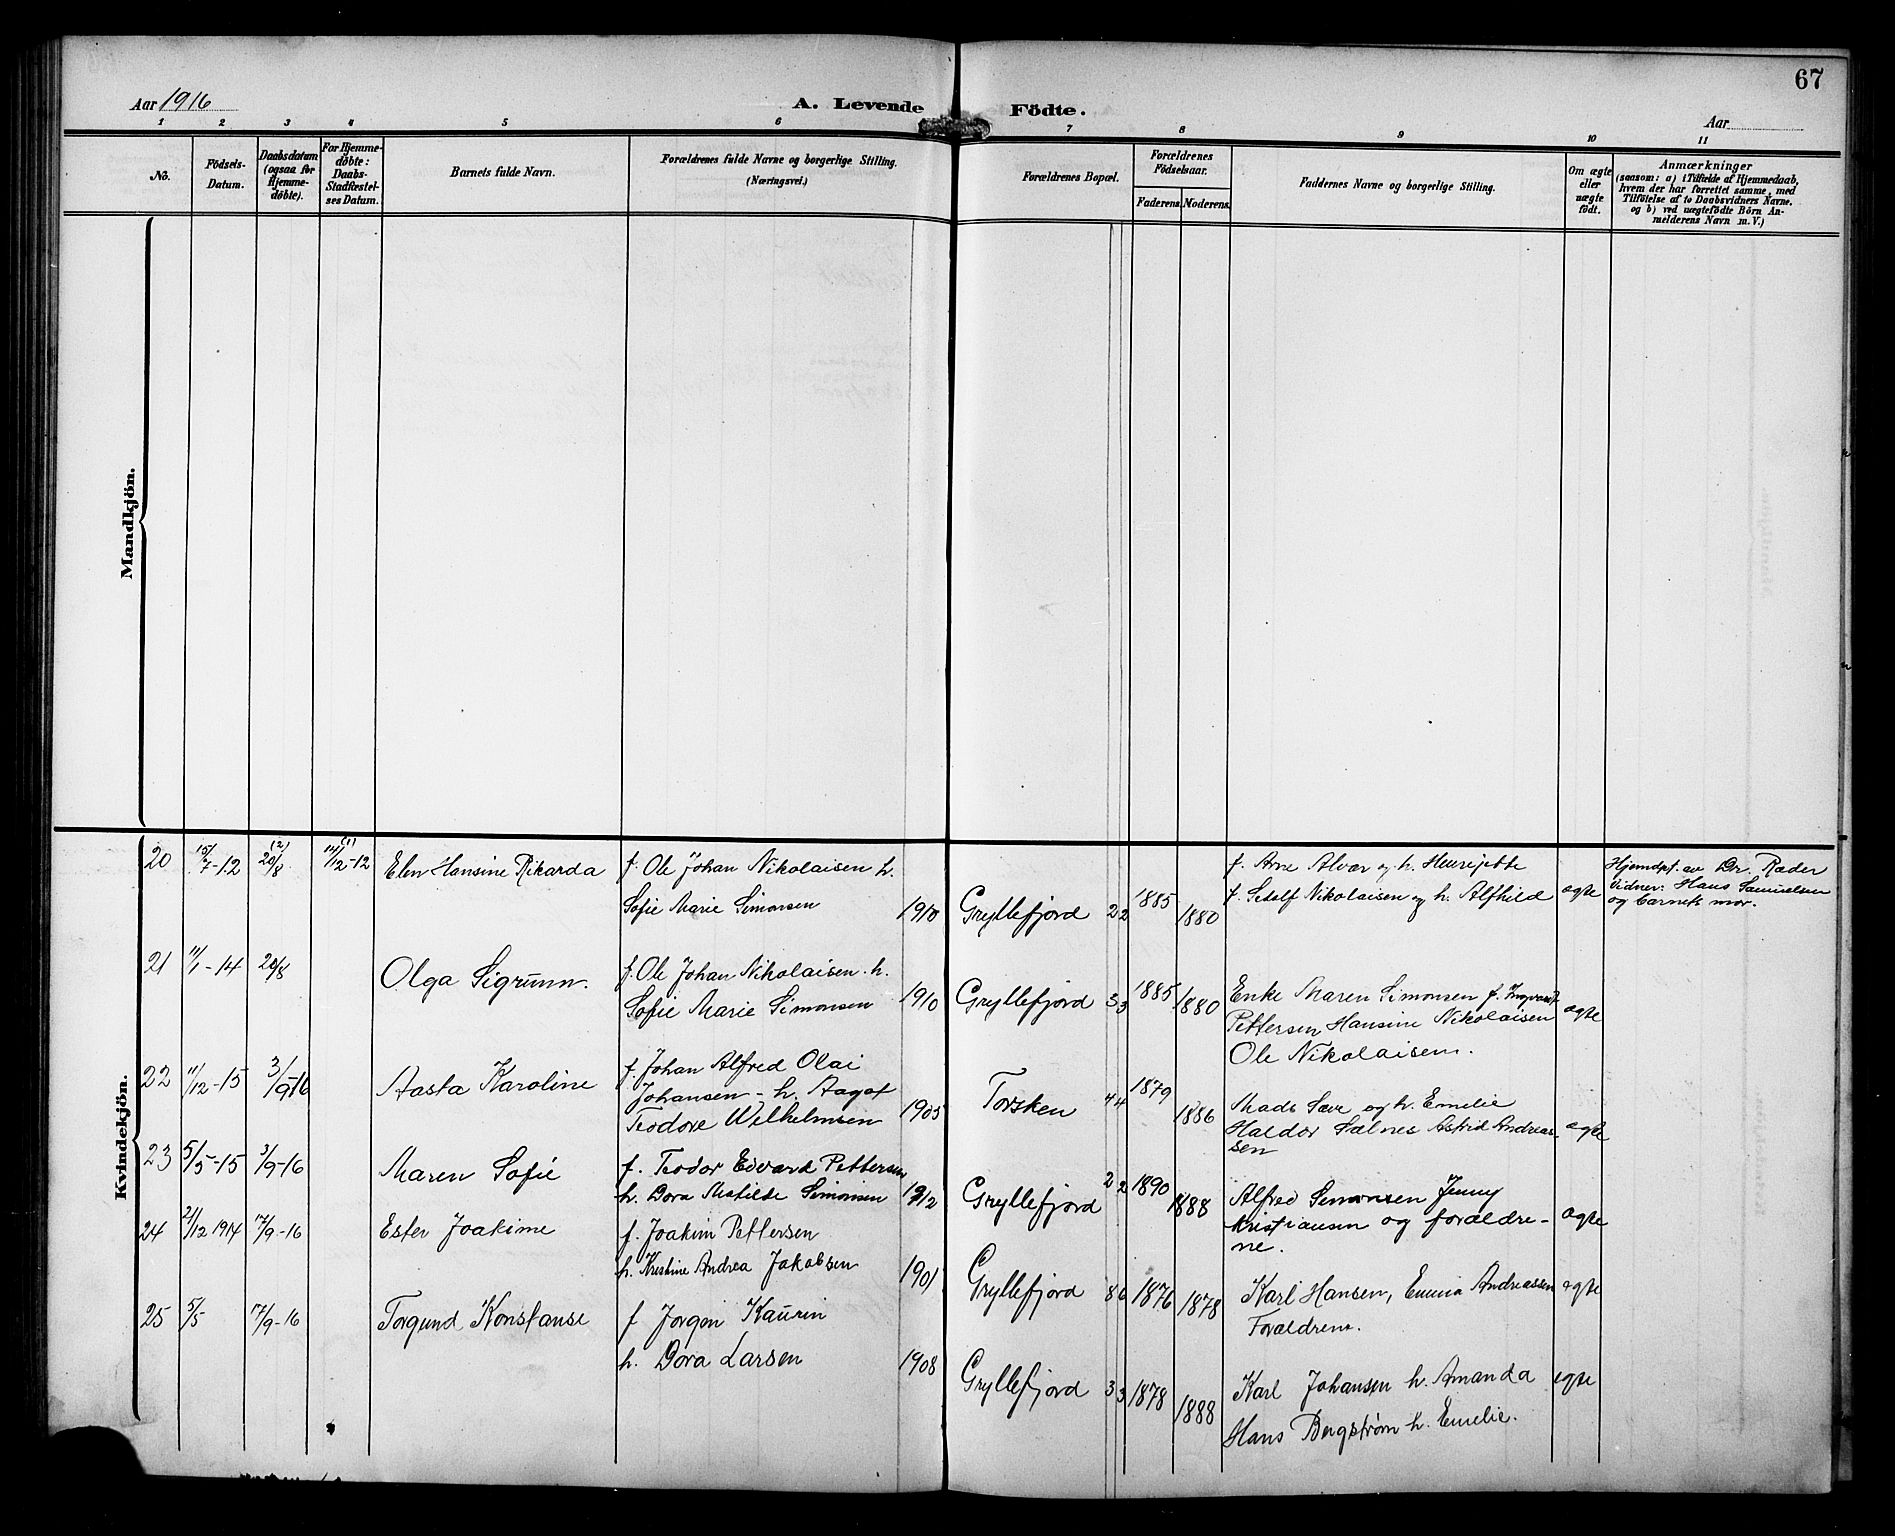 67
Aar 1916
A. Levende Födte.
Aar
1 2 3 4 5 6 7 8 9 10 11
No.
Födsels-
Datum.
Daabsdatum
(ogsaa for
Hjemme-
döbte).
For Hjemme-
döbte:
Daabs-
Stadfæstel-
ses Datum.
Barnets fulde Navn.
Forældrenes fulde Navne og borgerlige Stilling.
(Næringsvei.)
Forældrenes Bopæl.
Forældrenes
Födselsaar.
Faderens. Moderens.
Faddernes Navne og borgerlige Stilling.
Om ægte
eller
uægte
födt.
Anmærkninger
(saasom: a) i Tilfælde af Hjemmedaab,
hvem der har forrettet samme, med
Tilföielse af to Daabsvidners Navne.
og b) ved uægtefödte Börn An-
melderens Navn m. V.)
Mandkjön.
Kvindekjön.
20 15/7-12 (2) 20/8 (1) 14/12-12 Elen Hansine Rikarda f. Ole Johan Nikolaisen h.
Sofie Marie Simonsen 1910 Gryllefjord 2 2 1885 1880
f. Arne Alvær og h. Henrijette
f. Sedolf Nikolaisen og h. Alfhild ægte
Hjemdøpt. av Dr. Ræder
Vidner: Hans Samuelsen
og barnets mor.
21 11/1-14 20/8 Olga Sigrunn. f. Ole Johan Nikolaisen. h.
Sofie Marie Simonsen 1910 Gryllefjord 3 3 1885 1880
Enke Maren Simonsen f. Ingvart
Pettersen Hansine Nikolaisen ægte
Ole Nikolaisen.
22 11/12-15 3/9-16 Aasta Karoline f. Johan Alfred Olai
Johansen - h. Aagot
Teodore Wilhelmsen 1905 Torsken 4 4 1879 1886
Mads Save og h. Emelie
Haldor Sælnes Astrid Andreas-
sen ægte
23 5/5-15 3/9-16 Maren Sofie f. Teodor Edvard Pettersen
h. Dora Matilde Simonsen 1912 Gryllefjord 2 2 1890 1888
Alfred Simonsen Jenny
Kristiansen og forældre-
ne. ægte
24 21/12 1914 17/9-16 Ester Joakime f. Joakim Pettersen
h. Kristine Andrea Jakobsen 1901 Gryllefjord 8 6 1876 1878
Karl Hansen, Emma Andreassen ægte
Forældrene.
25 5/5 17/9-16 Torgund Konstanse f Jørgen Kaurin
h. Dora Larsen 1908 Gryllefjord 3 3 1878 1888
Karl Johansen h. Amanda ægte
Hans Bergstrøm h. Emelie.